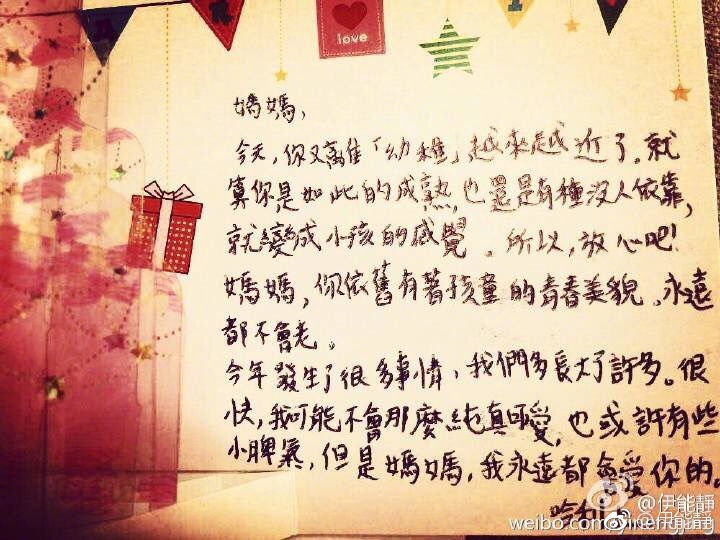 love
媽媽,
今天,你又離隹「幼種」越來越近了。就
算你是如此的成熟,也還是有種沒人依靠,
就變成小孩的感覺。所以,放心吧!
媽媽,你依舊有著孩童的青春美貌。永遠
都不會老。
今年發生了很多事情,我們多長大了許多。很
快,我可能不會那麼純真可愛,也或許有些
小脾氣,但是媽媽,我永遠都會愛你的。
哈利
@伊能靜
weibo.com/yinengjing